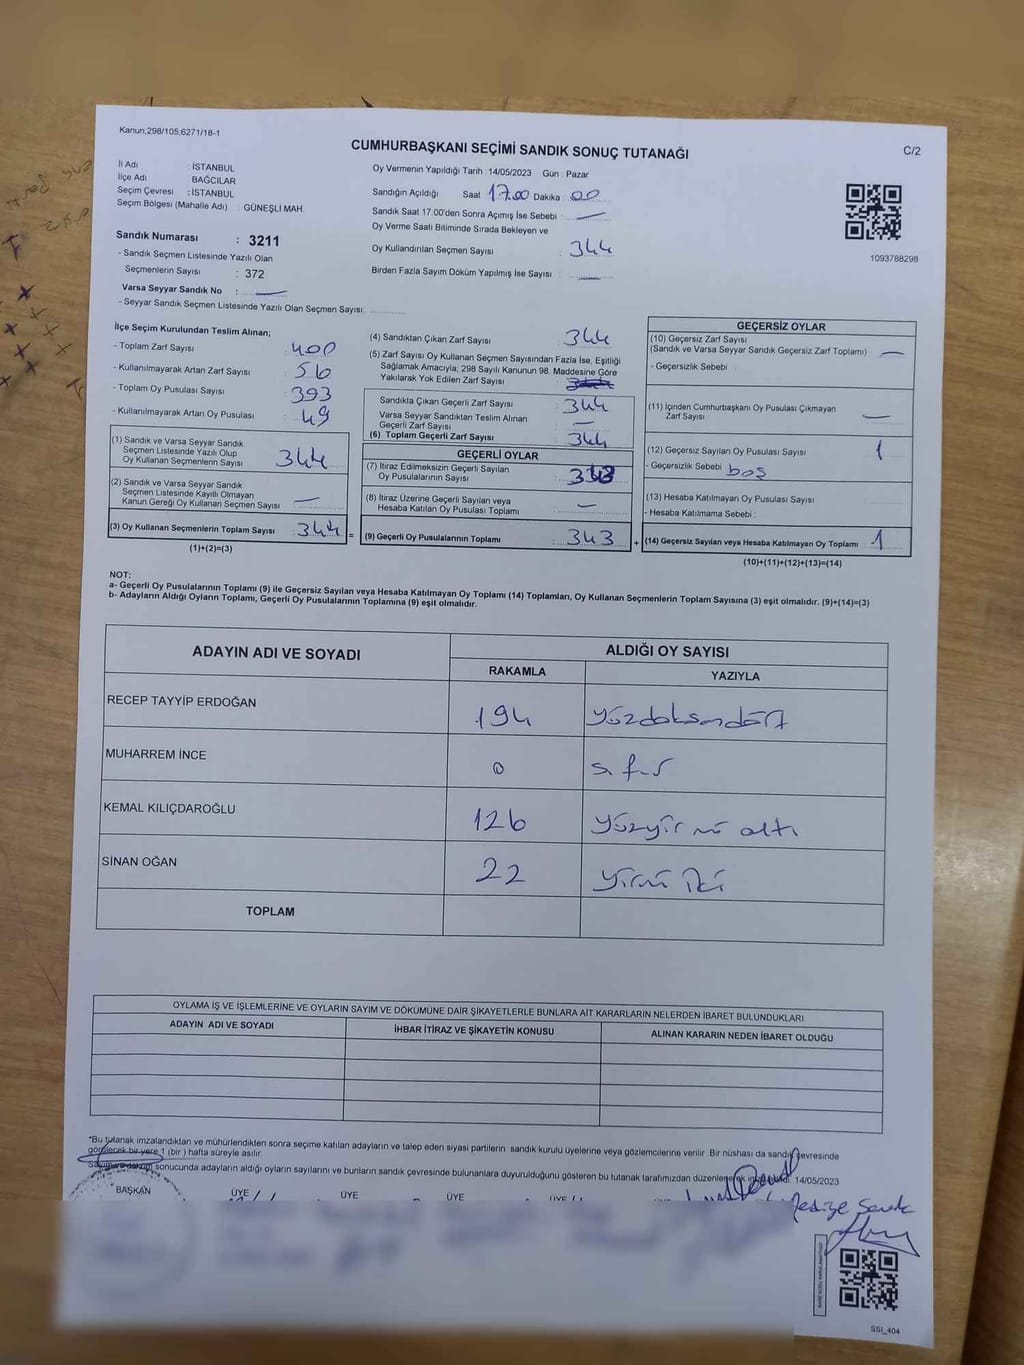 Kanun:298/105,6271/18-1
CUMHURBAŞKANI SEÇİMİ SANDIK SONUÇ TUTANAĞI
C/2
İl Adı : İSTANBUL
İlçe Adı : BAĞCILAR
Seçim Çevresi : İSTANBUL
Seçim Bölgesi (Mahalle Adı) GÜNEŞLİ MAH.
Oy Vermenin Yapıldığı Tarih : 14/05/2023 Gün : Pazar
Sandığın Açıldığı Saat 17.00 Dakika : 00
Sandık Saat 17:00'den Sonra Açımış İse Sebebi : —
Oy Verme Saati Bitiminde Sırada Bekleyen ve
Oy Kullandırılan Seçmen Sayısı : 344
Birden Fazla Sayım Döküm Yapılmış İse Sayısı : —
1093788298
Sandık Numarası : 3211
- Sandık Seçmen Listesinde Yazılı Olan
Seçmenlerin Sayısı : 372
Varsa Seyyar Sandık No : —
- Seyyar Sandık Seçmen Listesinde Yazılı Olan Seçmen Sayısı:
İlçe Seçim Kurulundan Teslim Alınan;
- Toplam Zarf Sayısı : 400
- Kullanılmayarak Artan Zarf Sayısı : 56
- Toplam Oy Pusulası Sayısı : 393
- Kullanılmayarak Artan Oy Pusulası : 49
(1) Sandık ve Varsa Seyyar Sandık
Seçmen Listesinde Yazılı Olup
Oy Kullanan Seçmenlerin Sayısı 344
(2) Sandık ve Varsa Seyyar Sandık
Seçmen Listesinde Kayıtlı Olmayan
Kanun Gereği Oy Kullanan Seçmen Sayısı : —
(3) Oy Kullanan Seçmenlerin Toplam Sayısı : 344 =
(1)+(2)=(3)
(4) Sandıktan Çıkan Zarf Sayısı : 344
(5) Zarf Sayısı Oy Kullanan Seçmen Sayısından Fazla İse, Eşitliği
Sağlamak Amacıyla; 298 Sayılı Kanunun 98. Maddesine Göre
Yakılarak Yok Edilen Zarf Sayısı :
Sandıkta Çıkan Geçerli Zarf Sayısı : 344
Varsa Seyyar Sandıktan Teslim Alınan
Geçerli Zarf Sayısı : —
(6) Toplam Geçerli Zarf Sayısı : 344
GEÇERLİ OYLAR
(7) İtiraz Edilmeksizin Geçerli Sayılan
Oy Pusulalarının Sayısı : 343
(8) İtiraz Üzerine Geçerli Sayılan veya
Hesaba Katılan Oy Pusulası Toplamı : —
(9) Geçerli Oy Pusulalarının Toplamı : 343 +
GEÇERSİZ OYLAR
(10) Geçersiz Zarf Sayısı
(Sandık ve Varsa Seyyar Sandık Geçersiz Zarf Toplamı) —
- Geçersizlik Sebebi :
(11) İçinden Cumhurbaşkanı Oy Pusulası Çıkmayan
Zarf Sayısı : —
(12) Geçersiz Sayılan Oy Pusulası Sayısı : 1
- Geçersizlik Sebebi : boş
(13) Hesaba Katılmayan Oy Pusulası Sayısı :
- Hesaba Katılmama Sebebi :
(14) Geçersiz Sayılan veya Hesaba Katılmayan Oy Toplamı : 1
(10)+(11)+(12)+(13)=(14)
NOT:
a- Geçerli Oy Pusulalarının Toplamı (9) ile Geçersiz Sayılan veya Hesaba Katılmayan Oy Pusulası Toplamı (14) Toplamları, Oy Kullanan Seçmenlerin Toplam Sayısına (3) eşit olmalıdır. (9)+(14)=(3)
b- Adayların Aldığı Oyların Toplamı, Geçerli Oy Pusulalarının Toplamına (9) eşit olmalıdır.
ADAYIN ADI VE SOYADI
ALDIĞI OY SAYISI
RAKAMLA YAZIYLA
RECEP TAYYİP ERDOĞAN 194 yüzdoksandört
MUHARREM İNCE 0 sıfır
KEMAL KILIÇDAROĞLU 126 yüzyirmi altı
SİNAN OĞAN 22 yirmi iki
TOPLAM
OYLAMA İŞ VE İŞLEMLERİNE VE OYLARIN SAYIM VE DÖKÜMÜNE DAİR ŞİKAYETLERLE BUNLARA AİT KARARLARIN NELERDEN İBARET BULUNDUKLARI
ADAYIN ADI VE SOYADI İHBAR İTİRAZ VE ŞİKAYETİN KONUSU ALINAN KARARIN NEDEN İBARET OLDUĞU
*Bu tutanak imzalandıktan ve mühürlendikten sonra seçime katılan adayların ve talep eden siyasi partilerin sandık kurulu üyelerine veya gözlemcilerine verilir. Bir nüshası da sandık çevresinde
görülecek bir yere 1 (bir) hafta süreyle asılır.
Sayım ve dökün sonucunda adayların aldığı oyların sayılarını ve bunların sandık çevresinde bulunanlara duyurulduğunu gösteren bu tutanak tarafımızdan düzenlenerek imzalandı. 14/05/2023
BAŞKAN ÜYE ÜYE ÜYE ÜYE
SSI_404